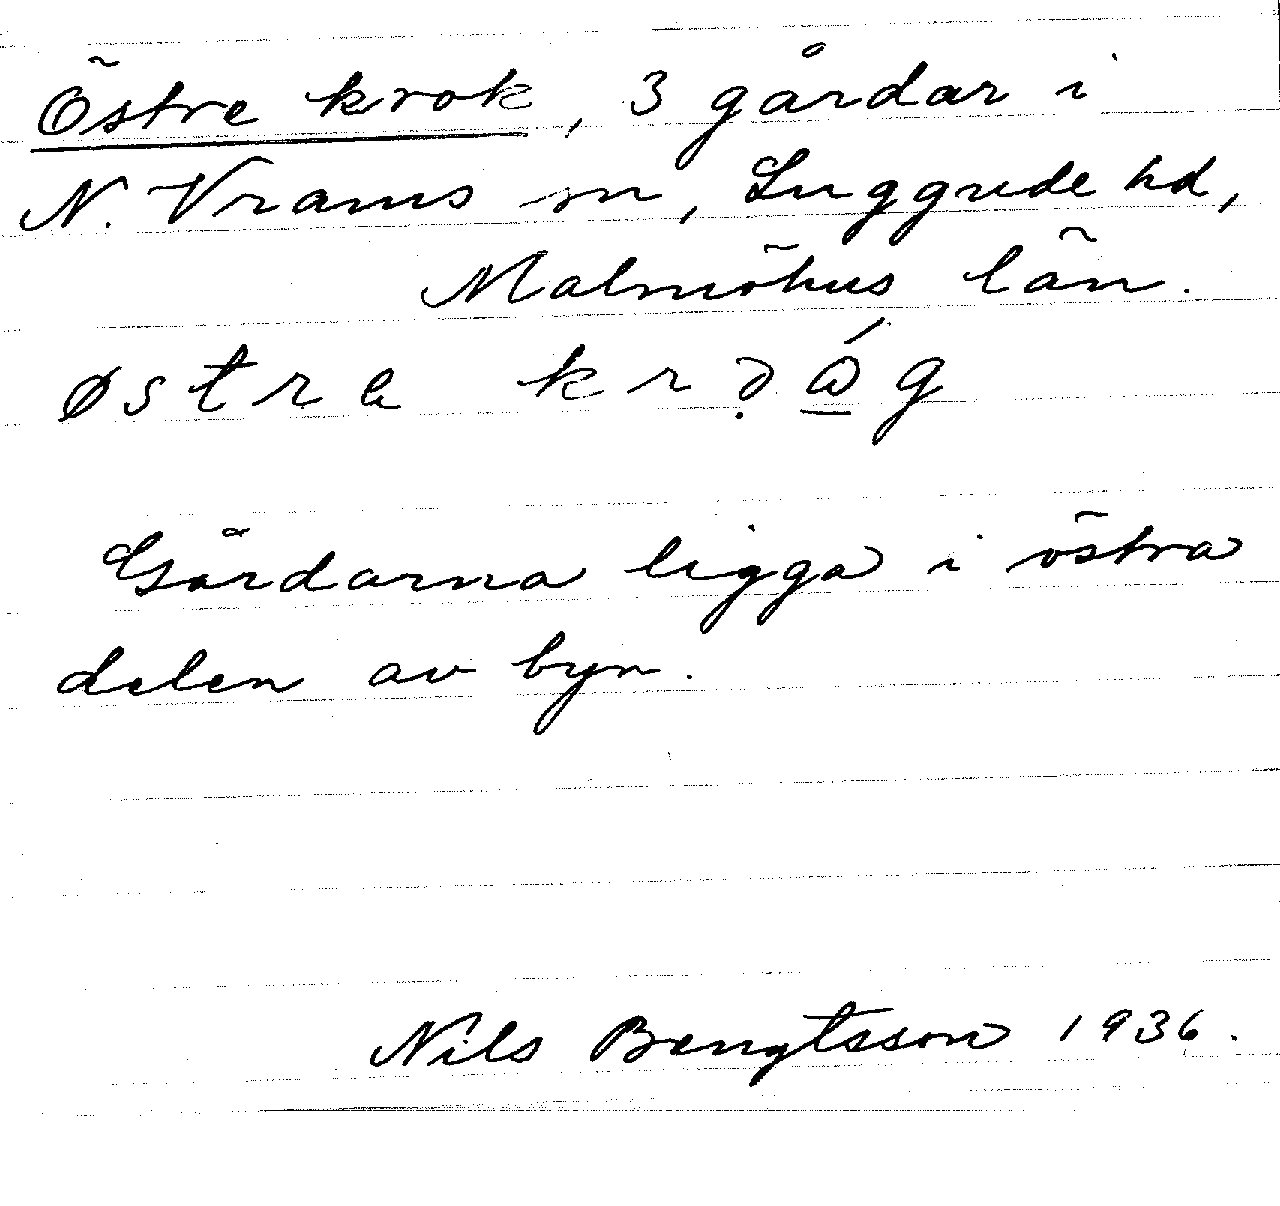 Östre krok, 3 gårdar i
N. Vrams sn, Luggude hd,
Malmöhus län.
østra krə̣ǻ̲g
Gårdarna ligga i östra
delen av byn.
Nils Bengtsson 1936.